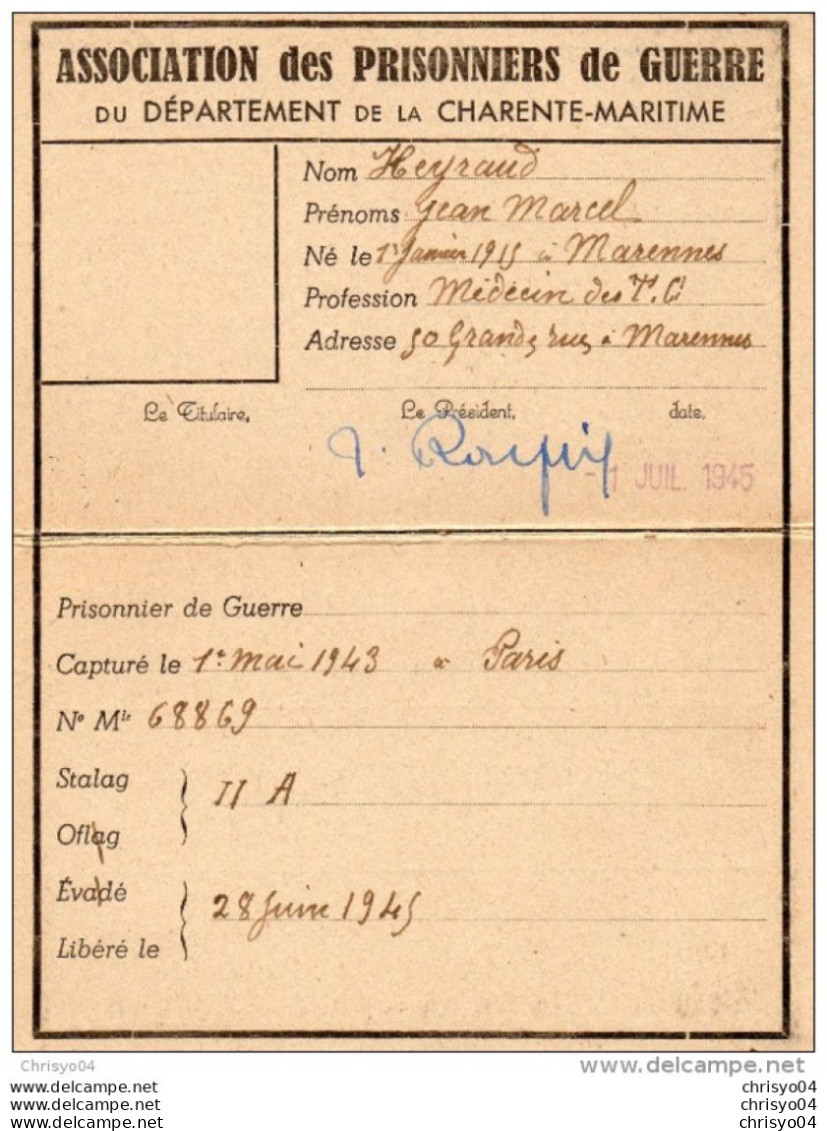 ASSOCIATION des PRISONNIERS de GUERRE
DU DÉPARTEMENT DE LA CHARENTE-MARITIME
Nom Heyraud
Prénoms Jean Marcel
Né le 1er Janvier 1915 à Marennes
Profession Médecin des T. C
Adresse 50 Grande rue à Marennes
Le Titulaire, Le Président, date,
- 1 JUIL. 1945
Prisonnier de Guerre
Capturé le 1er mai 1943 à Paris
No Mle 68869
Stalag II A
Oflag
Évadé 28 Juin 1945
Libéré le
Chrisyo04 www.delcampe.net
www.delcampe.net chrisyo04
www.delcampe.net chrisyo04
www.delcampe.net chrisyo04